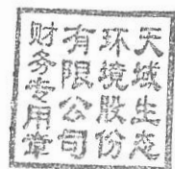 天域生态
环境股份
有限公司
财务专用章